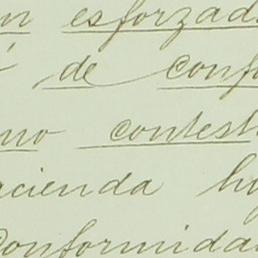 n esforzad
de conf
mo contest
acienda h
Conformida